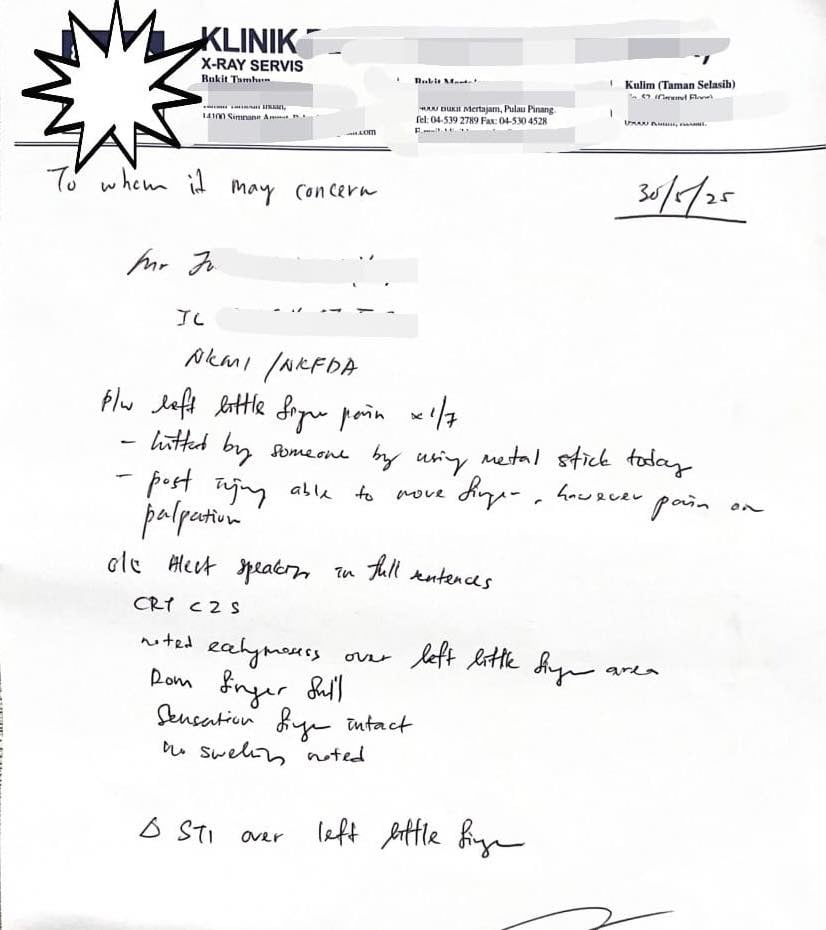 KLINIK
X-RAY SERVIS
Bukit Tambun
Kulim (Taman Selasih)
14100 Simpang
Bukit Mertajam, Pulau Pinang.
Tel: 04-539 2789 Fax: 04-530 4528
.com
To whom it may concern
30/5/25
Mr
IC
NKMI /NKFDA
P/w left little finger pain x 1/7
- hitted by someone by using metal stick today
- post injury able to move finger, however pain on
palpation
o/e Alert speaking in full sentences
CRT < 2 s
noted ecchymosis over left little finger area
Rom finger full
Sensation finger intact
no swelling noted
Δ STI over left little finger